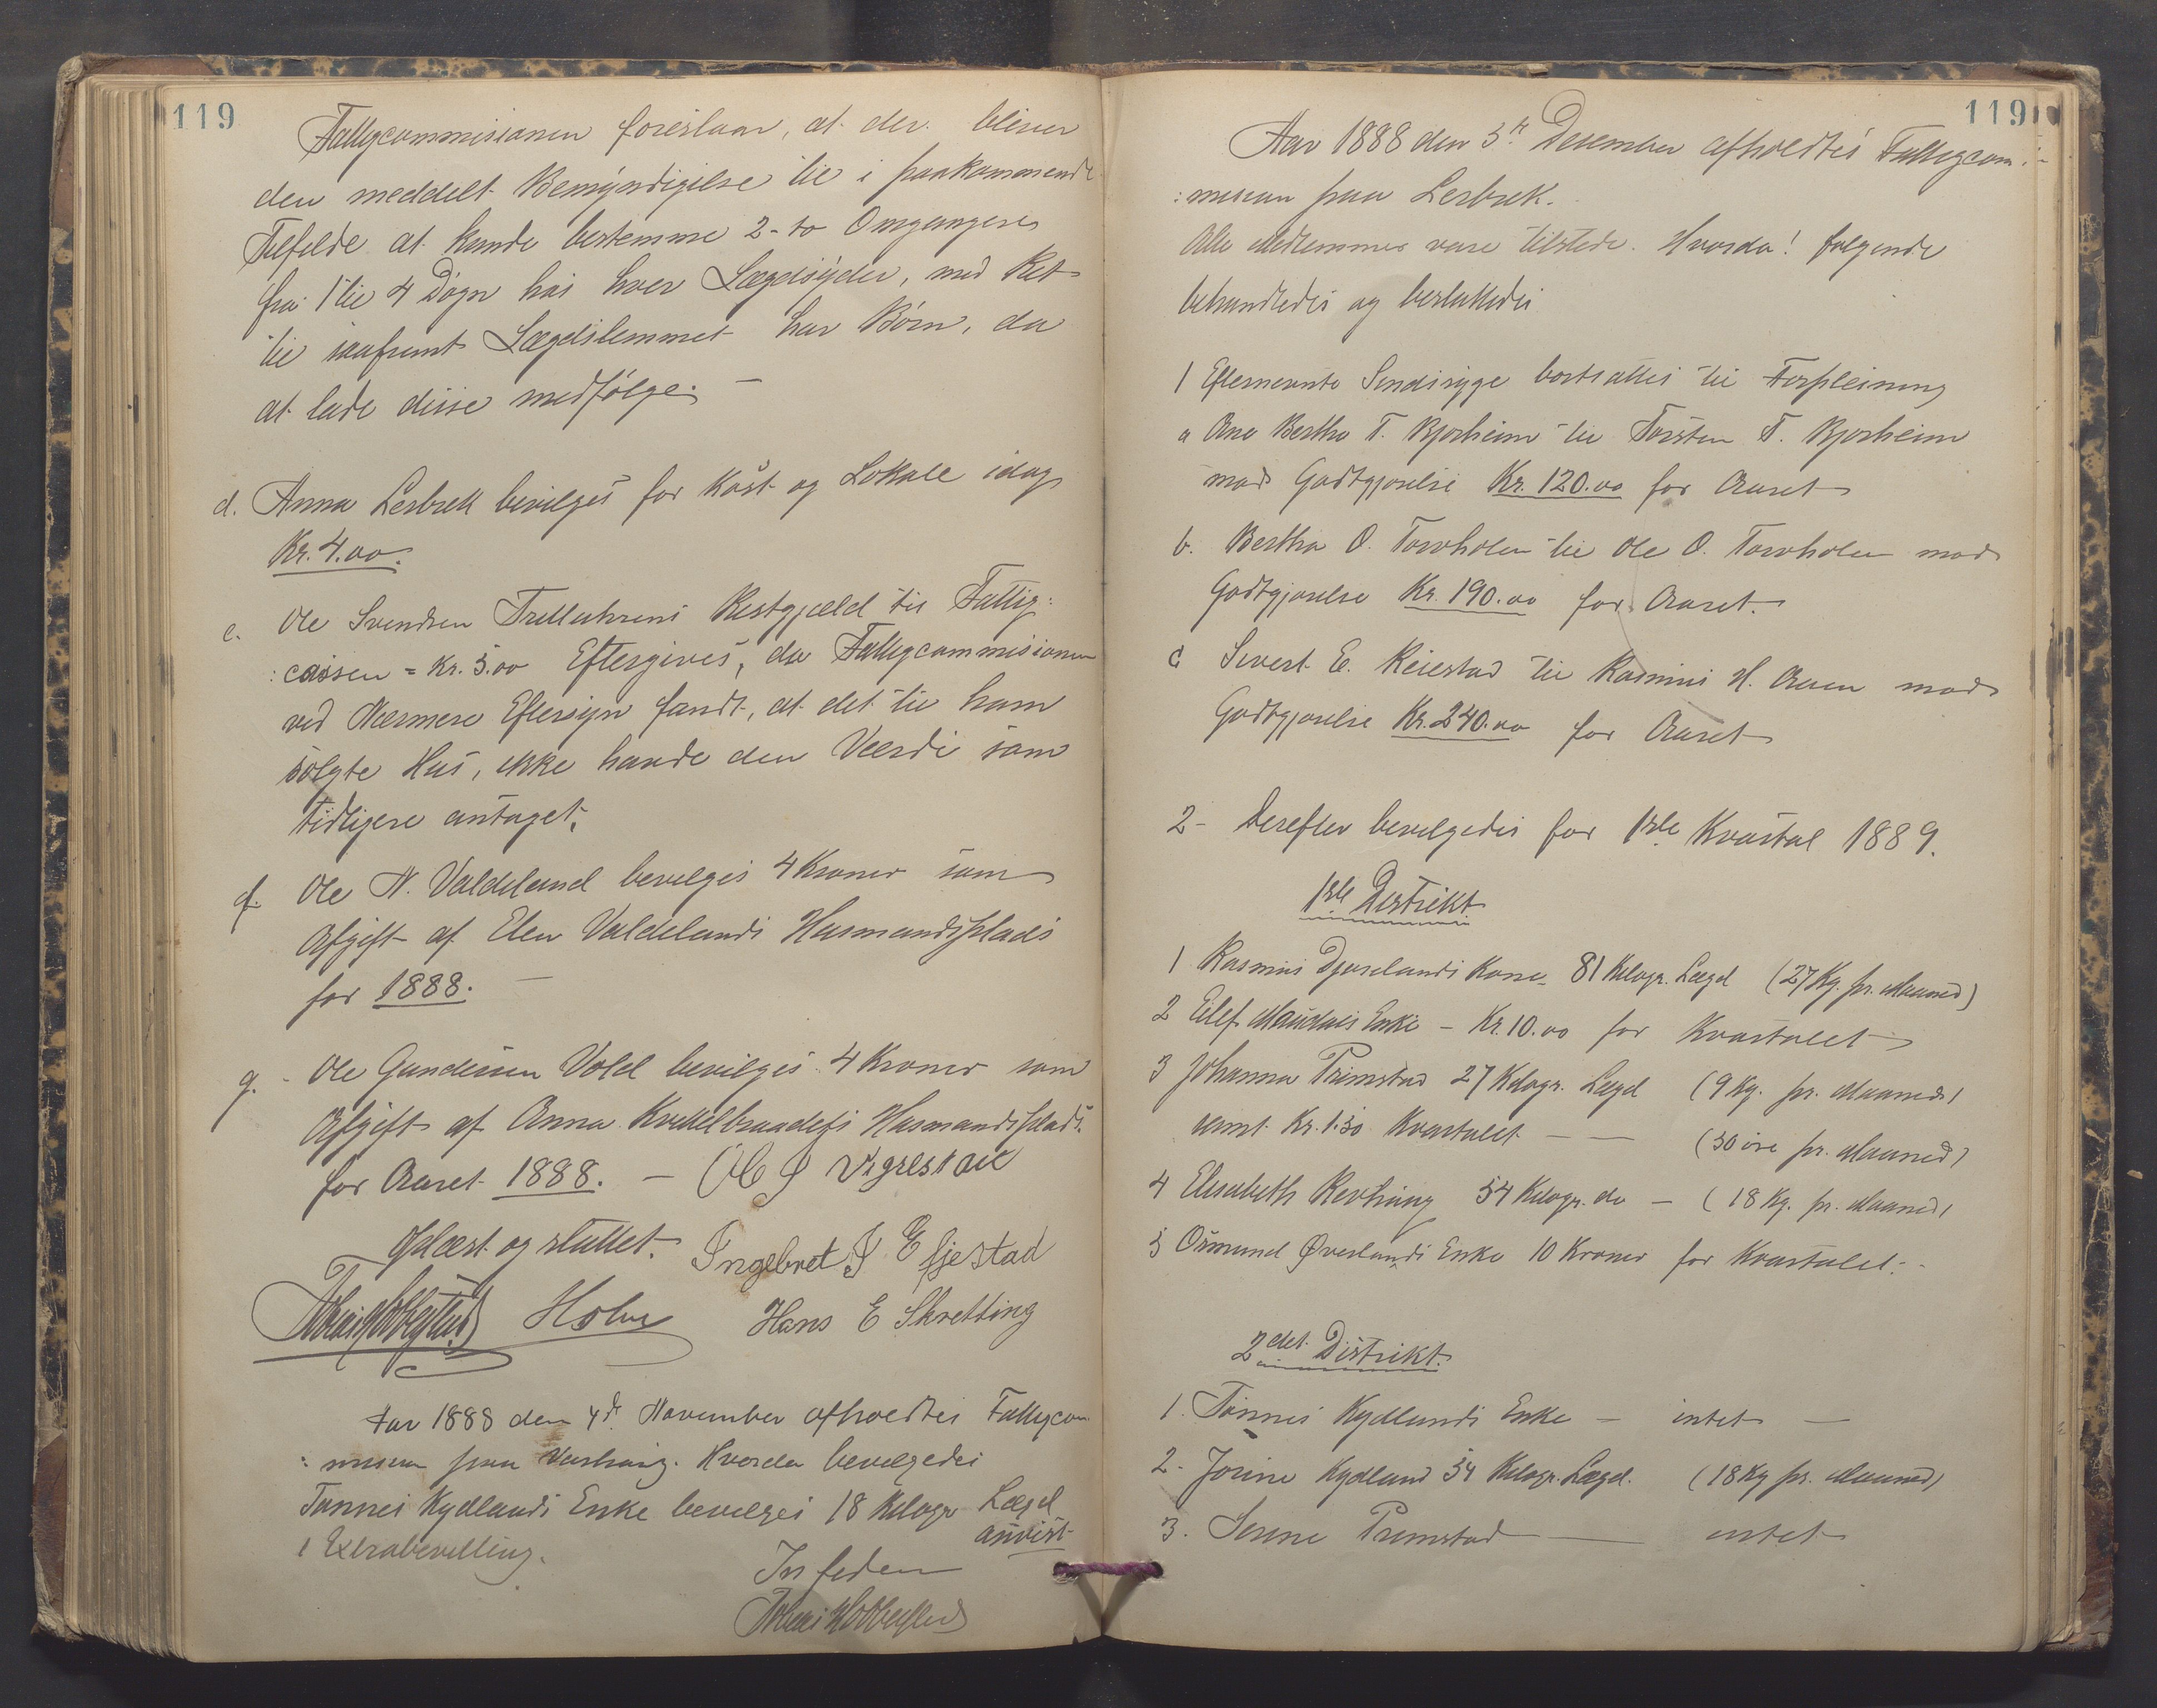 119
Fattigcommisionen foreslaar, at der bliver
den meddelt Bemyndigelse til i paakommende
Tilfelde at kunde bestemme 2- to Omgangere
fra 1 til 4 Døgn hos hver Lægdsyder, med Ret
til saafremt Lægdslemmet har Børn, da
at lade disse medfølge. —
d. Anna Lerbrek bevilges for Kost og Lokale idag
Kr. 4.00.
e. Ole Svendsen Restgjæld til Fattig:
:cassen = Kr. 5.00 Eftergives, da Fattigcommisionen
ved Nærmere Eftersyn fandt, at det til ham
solgte Hus, ikke havde den Værdi som
tidligere antaget.
f. Ole N. Valdeland bevilges 4 Kroner som
Afgift af Elen Valdelands Husmandsplads
for 1888. —
g. Ole Gundersen Vold bevilges 4 Kroner som
Afgift af Anna Husmandsplads
for Aaret 1888. — O S Vigrestad
Oplæst og sluttet. Ingebret S Efjestad
Holm Hans E Skretting
Aar 1888 den 4de November afholdtes Fattigcom
:mision paa Varhaug. Hvorda bevilgedes
Tønnes Kydlands Enke bevilges 18 Kilogr Lægd
i Extrabevilling. anvist
119
Aar 1888 den 5te Desember afholdtes Fattigcom:
:mision paa Lerbrek.
Alle Medlemmer vare tilstede. Hvorda! følgende
behandledes og besluttedes
1 Efternevnte Sindssyge bortsattes til Forpleining
a Ane Bertha T. Bjorheim til Torsten T. Bjorheim
mod Godtgjørelse Kr. 120.00 for Aaret
b. Bertha O. Torvholen til Ole O. Torvholen mod
Godtgjørelse Kr. 190.00 for Aaret.
c Sivert E. Reiestad til Rasmus H. Auen mod
Godtgjørelse Kr. 240.00 for Aaret
2- Derefter bevilgedes for 1ste Kvartal 1889.
1ste Distrikt
1 Rasmus Djuselands Kone 81 Kilogr. Lægd (27 Kg. pr. Maaned)
2 Eilef Maudals Enke - Kr. 10.00 for Kvartalet
3 Johanna Primstad 27 Kilogr. Lægd (9 Kg. pr. Maaned)
samt Kr. 1.50 Kvartalet — — (50 øre pr. Maaned)
4 Elisabeth Revhaug 54 Kilogr. do — (18 Kg. pr. Maaned)
5 Osmund Øverlands Enke 10 Kroner for Kvartalet.
2det Distrikt.
1. Tønnes Kydlands Enke — intet —
2- Jorine Kydland 54 Kilogr. Lægd. (18 Kg pr. Maaned)
3. Serine Primstad — intet